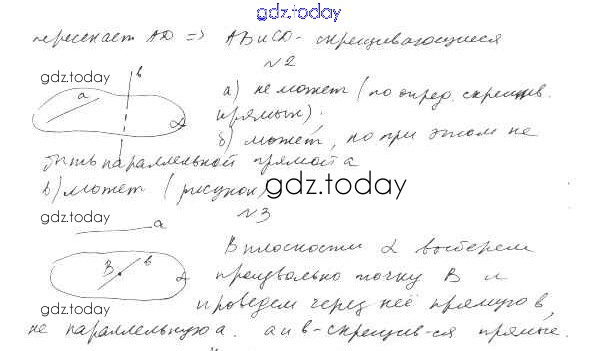 gdz.today
пересекает AD => AB и CD - скрещивающиеся
№2
gdz.today
а в
а) не может (по опред. скрещив.
прямых).
α
б) может, но при этом не
gdz.today
быть параллельной прямой а
в) может (рисунок)
gdz.today
№3
gdz.today
а
В плоскости α выберем
В в
α
произвольно точку В и
gdz.today
проведем через неё прямую в,
не параллельную а. а и в - скрещив-ся прямые.